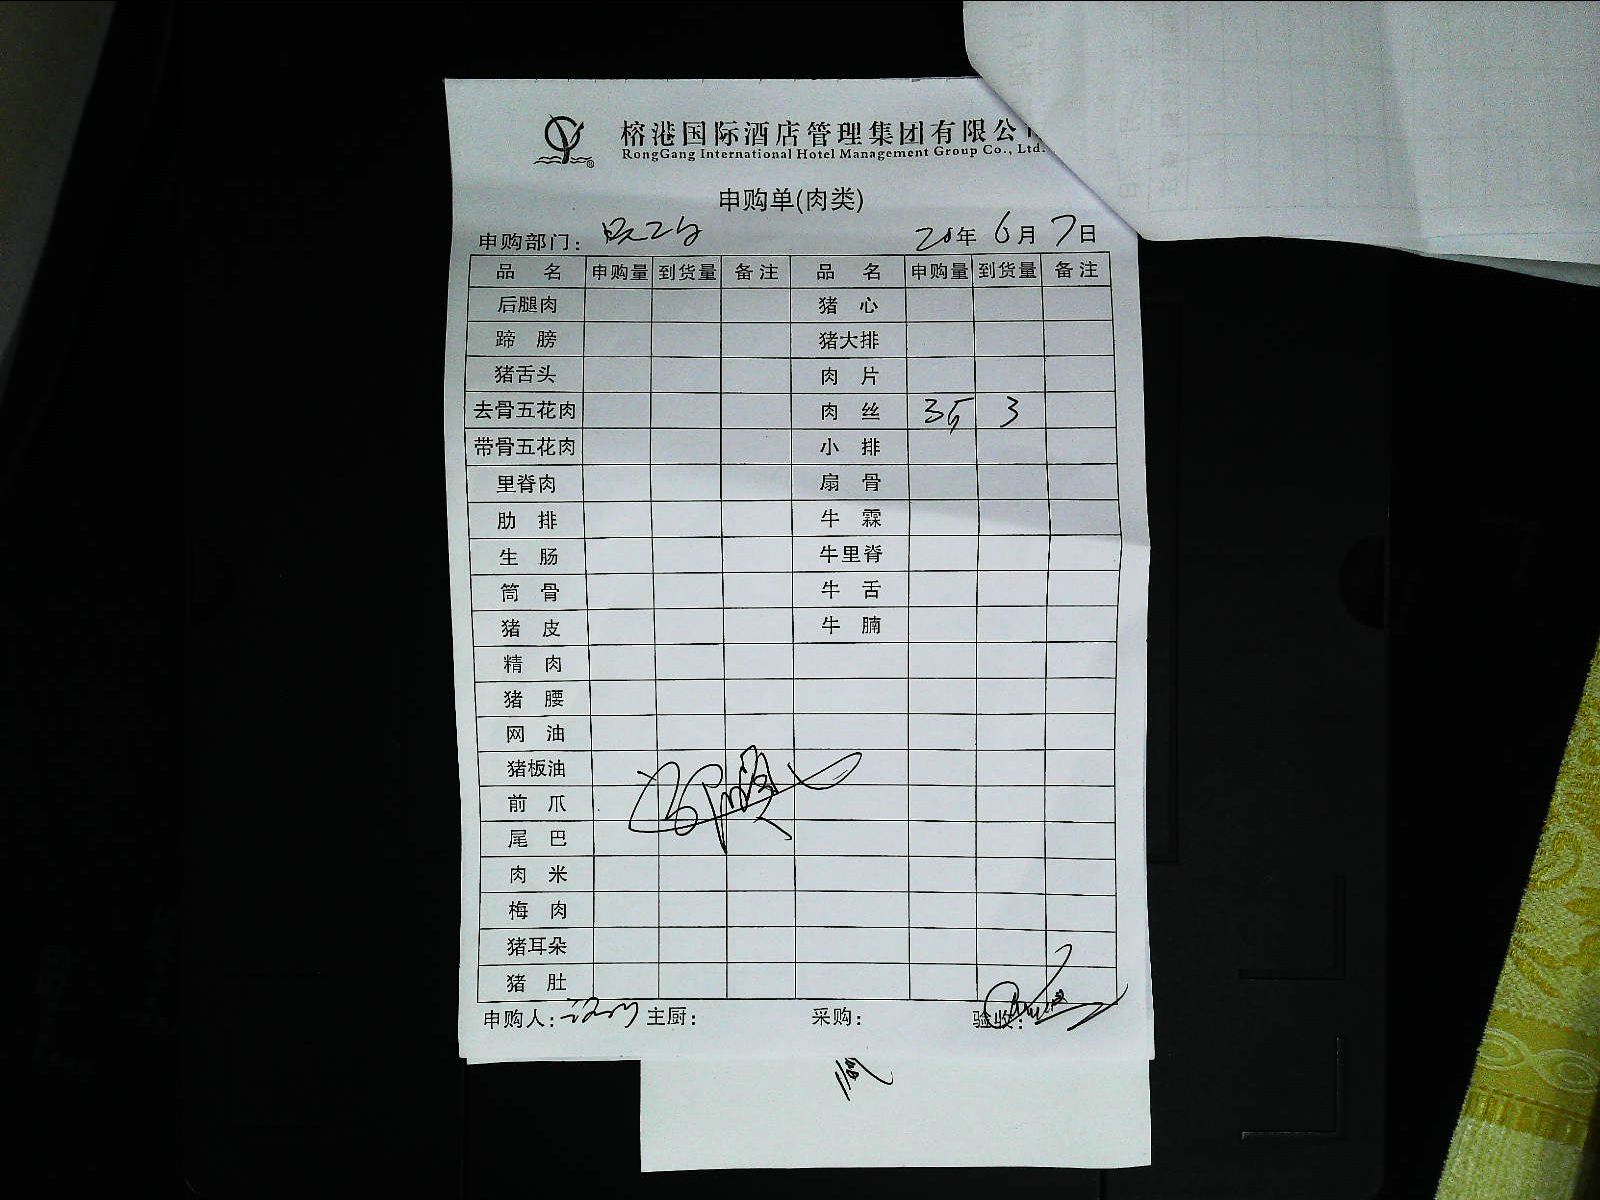 榕港国际酒店管理集团有限公
RongGang International Hotel Management Group Co., Ltd.
申购单(肉类)
申购部门： 20年 6月 7日
品名 申购量 到货量 备注 品名 申购量 到货量 备注
后腿肉 猪心
蹄膀 猪大排
猪舌头 肉片
去骨五花肉 肉丝 3斤 3
带骨五花肉 小排
里脊肉 扇骨
肋排 牛霖
生肠 牛里脊
筒骨 牛舌
猪皮 牛腩
精肉
猪腰
网油
猪板油
前爪
尾巴
肉米
梅肉
猪耳朵
猪肚
申购人： 主厨： 采购： 验收：